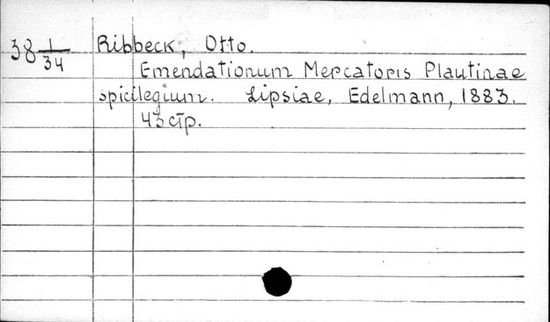 38 1/34
Ribbeck, Otto.
Emendationum Mercatoris Plautinae
spicilegium. Lipsiae, Edelmann, 1883.
43 стр.